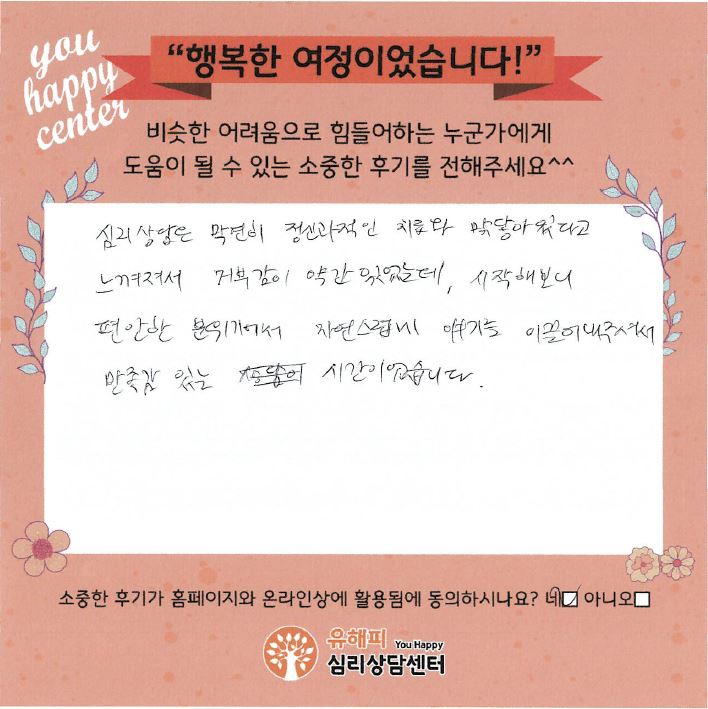 you
happy
center
“행복한 여정이었습니다!”
비슷한 어려움으로 힘들어하는 누군가에게
도움이 될 수 있는 소중한 후기를 전해주세요^^
심리상담은 막연히 정신과적인 치료와 맞닿아있다고
느껴져서 거부감이 약간 있었는데, 시작해보니
편안한 분위기에서 자연스럽게 얘기를 이끌어내주셔서
만족감 있는 시간이었습니다.
소중한 후기가 홈페이지와 온라인상에 활용됨에 동의하시나요? 네☑ 아니오□
유해피 You Happy
심리상담센터